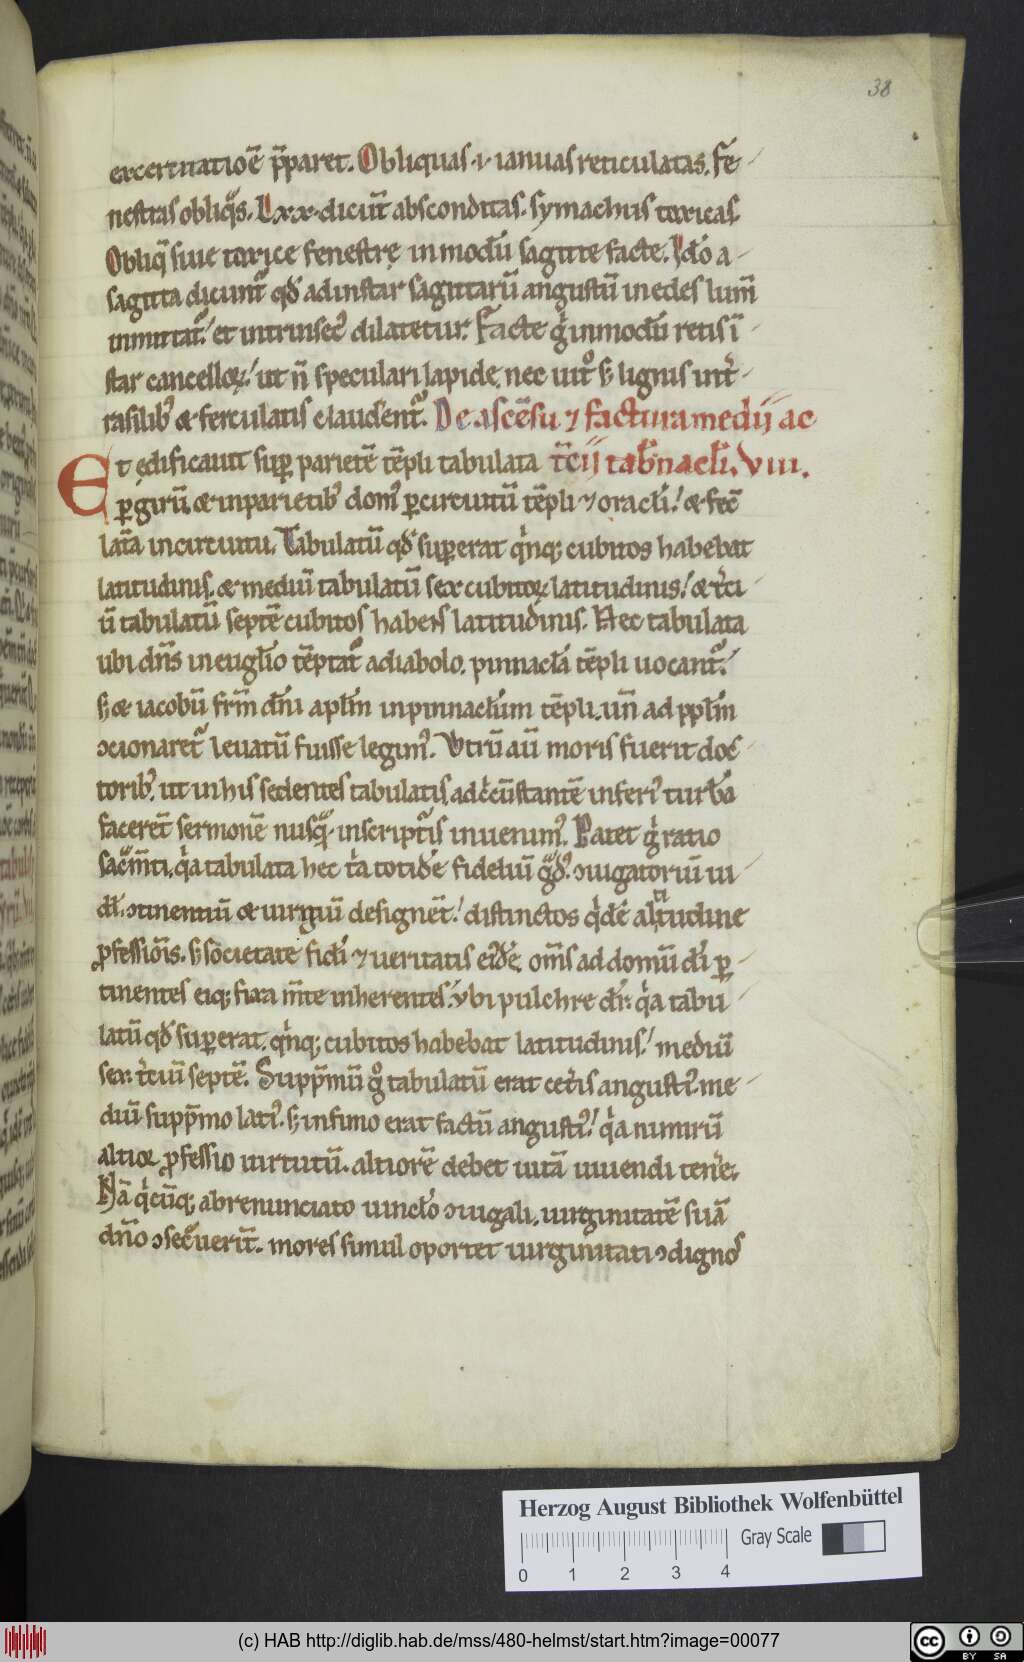 38
excercitatiōe p̄paret. Obliquas .i. ianuas reticulatas. Fe-
nestras obliqᵃs. Lxx. dicūt absconditas. symachus toxicas.
Obliq̄ siue toxice fenestrę in modū sagitte facte. Ideo a-
sagitta dicunt᷑ qđ ad instar sagittarū angustū in edes lum̄
inmittat᷑. et intrinsecꝰ dilatetur. Facte gͥ in modū retis ī-
star cancelloꝝ. ut ñ speculari lapide. nec uitͦ ꝫ lignis int̉-
rasilibꝰ & ferculatis claudent᷑. De ascēsu ⁊ factura medij ac
Et ędificauit suꝑ parietē tēpli tabulata t̄cij tab̉nacli. VIII.
ꝑ girū. & in parietibꝰ domꝰ ꝑ circuitū tēpli ⁊ oracłi. & fec̄
lat̄a in circuitu. Tabulatū qđ suꝑ erat qͥnqꝫ cubitos habebat
latitudinis. & mediū tabulatū sex cubitoꝝ latitudinis. & t̉ci-
ū tabulatū septē cubitos habens latitudinis. Hec tabulata
ubi dn̄s in eugłio tēptat᷑ a diabolo. pinnacła tēpli uocant᷑.
ꝫ & iacobū fr̄m dn̄i aplm̄ in pinnaclum tēpli. un̄ ad pplm̄
ↄcionaret᷑ leuatū fuisse legimꝰ. Vtrū aū moris fuerit doc-
toribꝰ. ut in his sedentes tabulatis. ad cͥcūstantē inferiꝰ turbā
facerēt sermonē nusqᵃ inscriptͥs inuenimꝰ. Patet gͥ ratio
sacᵃm̄ti. qͥa tabulata hec tͥa totidē fideliū gᵃdꝰ. ↄiugatorū ui-
dł. ↄtinentiū & uirginū designēt. distinctos qͥdē altitudine
ꝓfessiōis. ꝫ societate fidei ⁊ ueritatis eiꝰdē. om̄s ad domū dei ꝑ-
tinentes eiqꝫ fixa m̄te inherentes. Vbi pulchre dr̄. qͥa tabu-
latū qđ suꝑ erat. qͥnqꝫ cubitos habebat latitudinis. mediū
sex. t̉ciū septē. Supp̄mū gͦ tabulatū erat cet̉is angustiꝰ. me-
diū supp̄mo latiꝰ. ꝫ infimo erat factū angustiꝰ. qͥa nimirū
altior ꝓfessio uirtutū. altiorē debet uitā uiuendi ten̉e.
Nā qͥcūqꝫ abrenunciato uincło ↄiugali. uirginitatē suā
dn̄o ↄsecᵃuerit. mores simul oportet uirginitati ↄdignos
Herzog August Bibliothek Wolfenbüttel
Gray Scale
0 1 2 3 4
(c) HAB http://diglib.hab.de/mss/480-helmst/start.htm?image=00077
cc BY SA